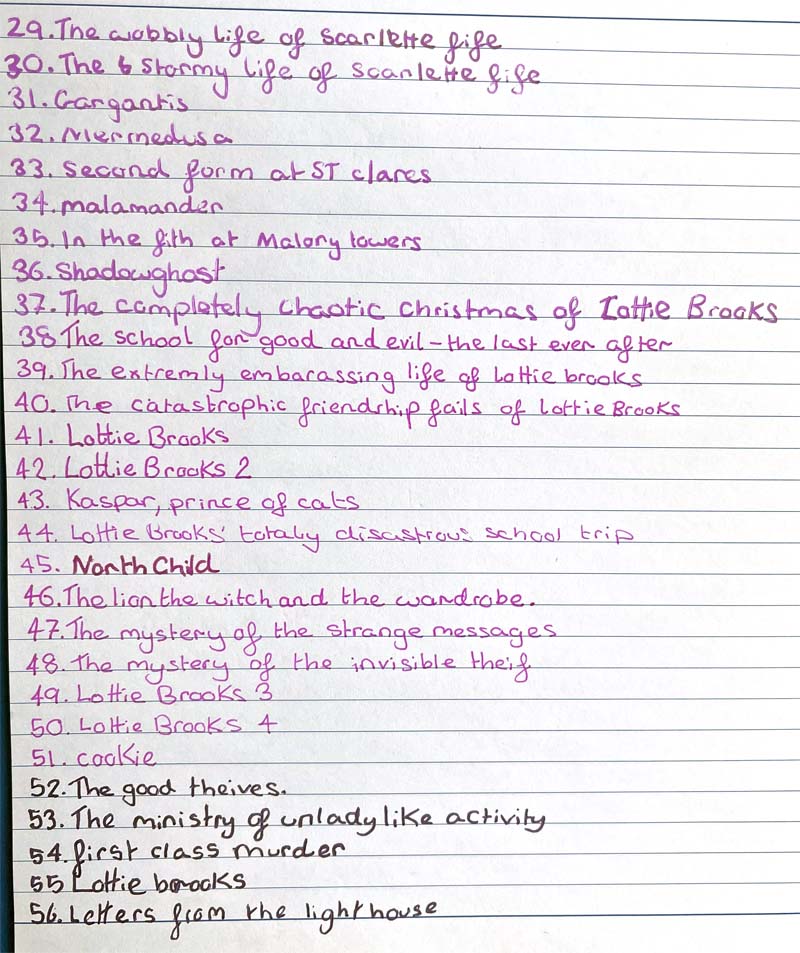 29. The wobbly life of scarlette fife
30. The 6 stormy life of scarlette fife
31. Gargantis
32. Mermedusa
33. Second form at ST clares
34. malamander
35. In the fith at Malory towers
36. Shadowghast
37. The completely chaotic christmas of Lottie Brooks
38 The school for good and evil - the last ever after
39. The extremly embarassing life of Lottie brooks
40. The catastrophic friendship fails of lottie Brooks
41. Lottie Brooks
42. Lottie Brooks 2
43. Kaspar, prince of cats
44. Lottie Brooks' totaly disastrous school trip
45. North Child
46. The lion the witch and the wardrobe.
47. The mystery of the strange messages
48. The mystery of the invisible theif
49. Lottie Brooks 3
50. Lottie Brooks 4
51. cookie
52. The good theives.
53. The ministry of unladylike activity
54. first class murder
55 Lottie brooks
56. Letters from the lighthouse